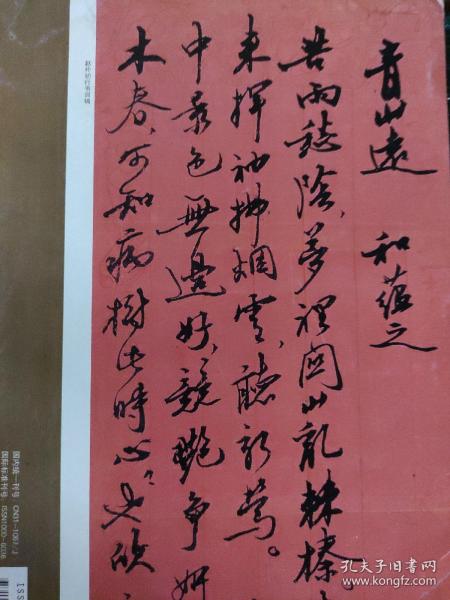 青山遠　和蘊之
苦雨愁陰，夢裡関山乱棘榛，
来揮袖拂烟雲，聽新鶯。
中景色無邊好，競艷争妍
木春，可知病樹此時心，也欣
赵朴初行书词稿
国内统一刊号 CN31-1067/J
国际标准刊号：ISSN1000-6036
ISS
孔夫子旧书网